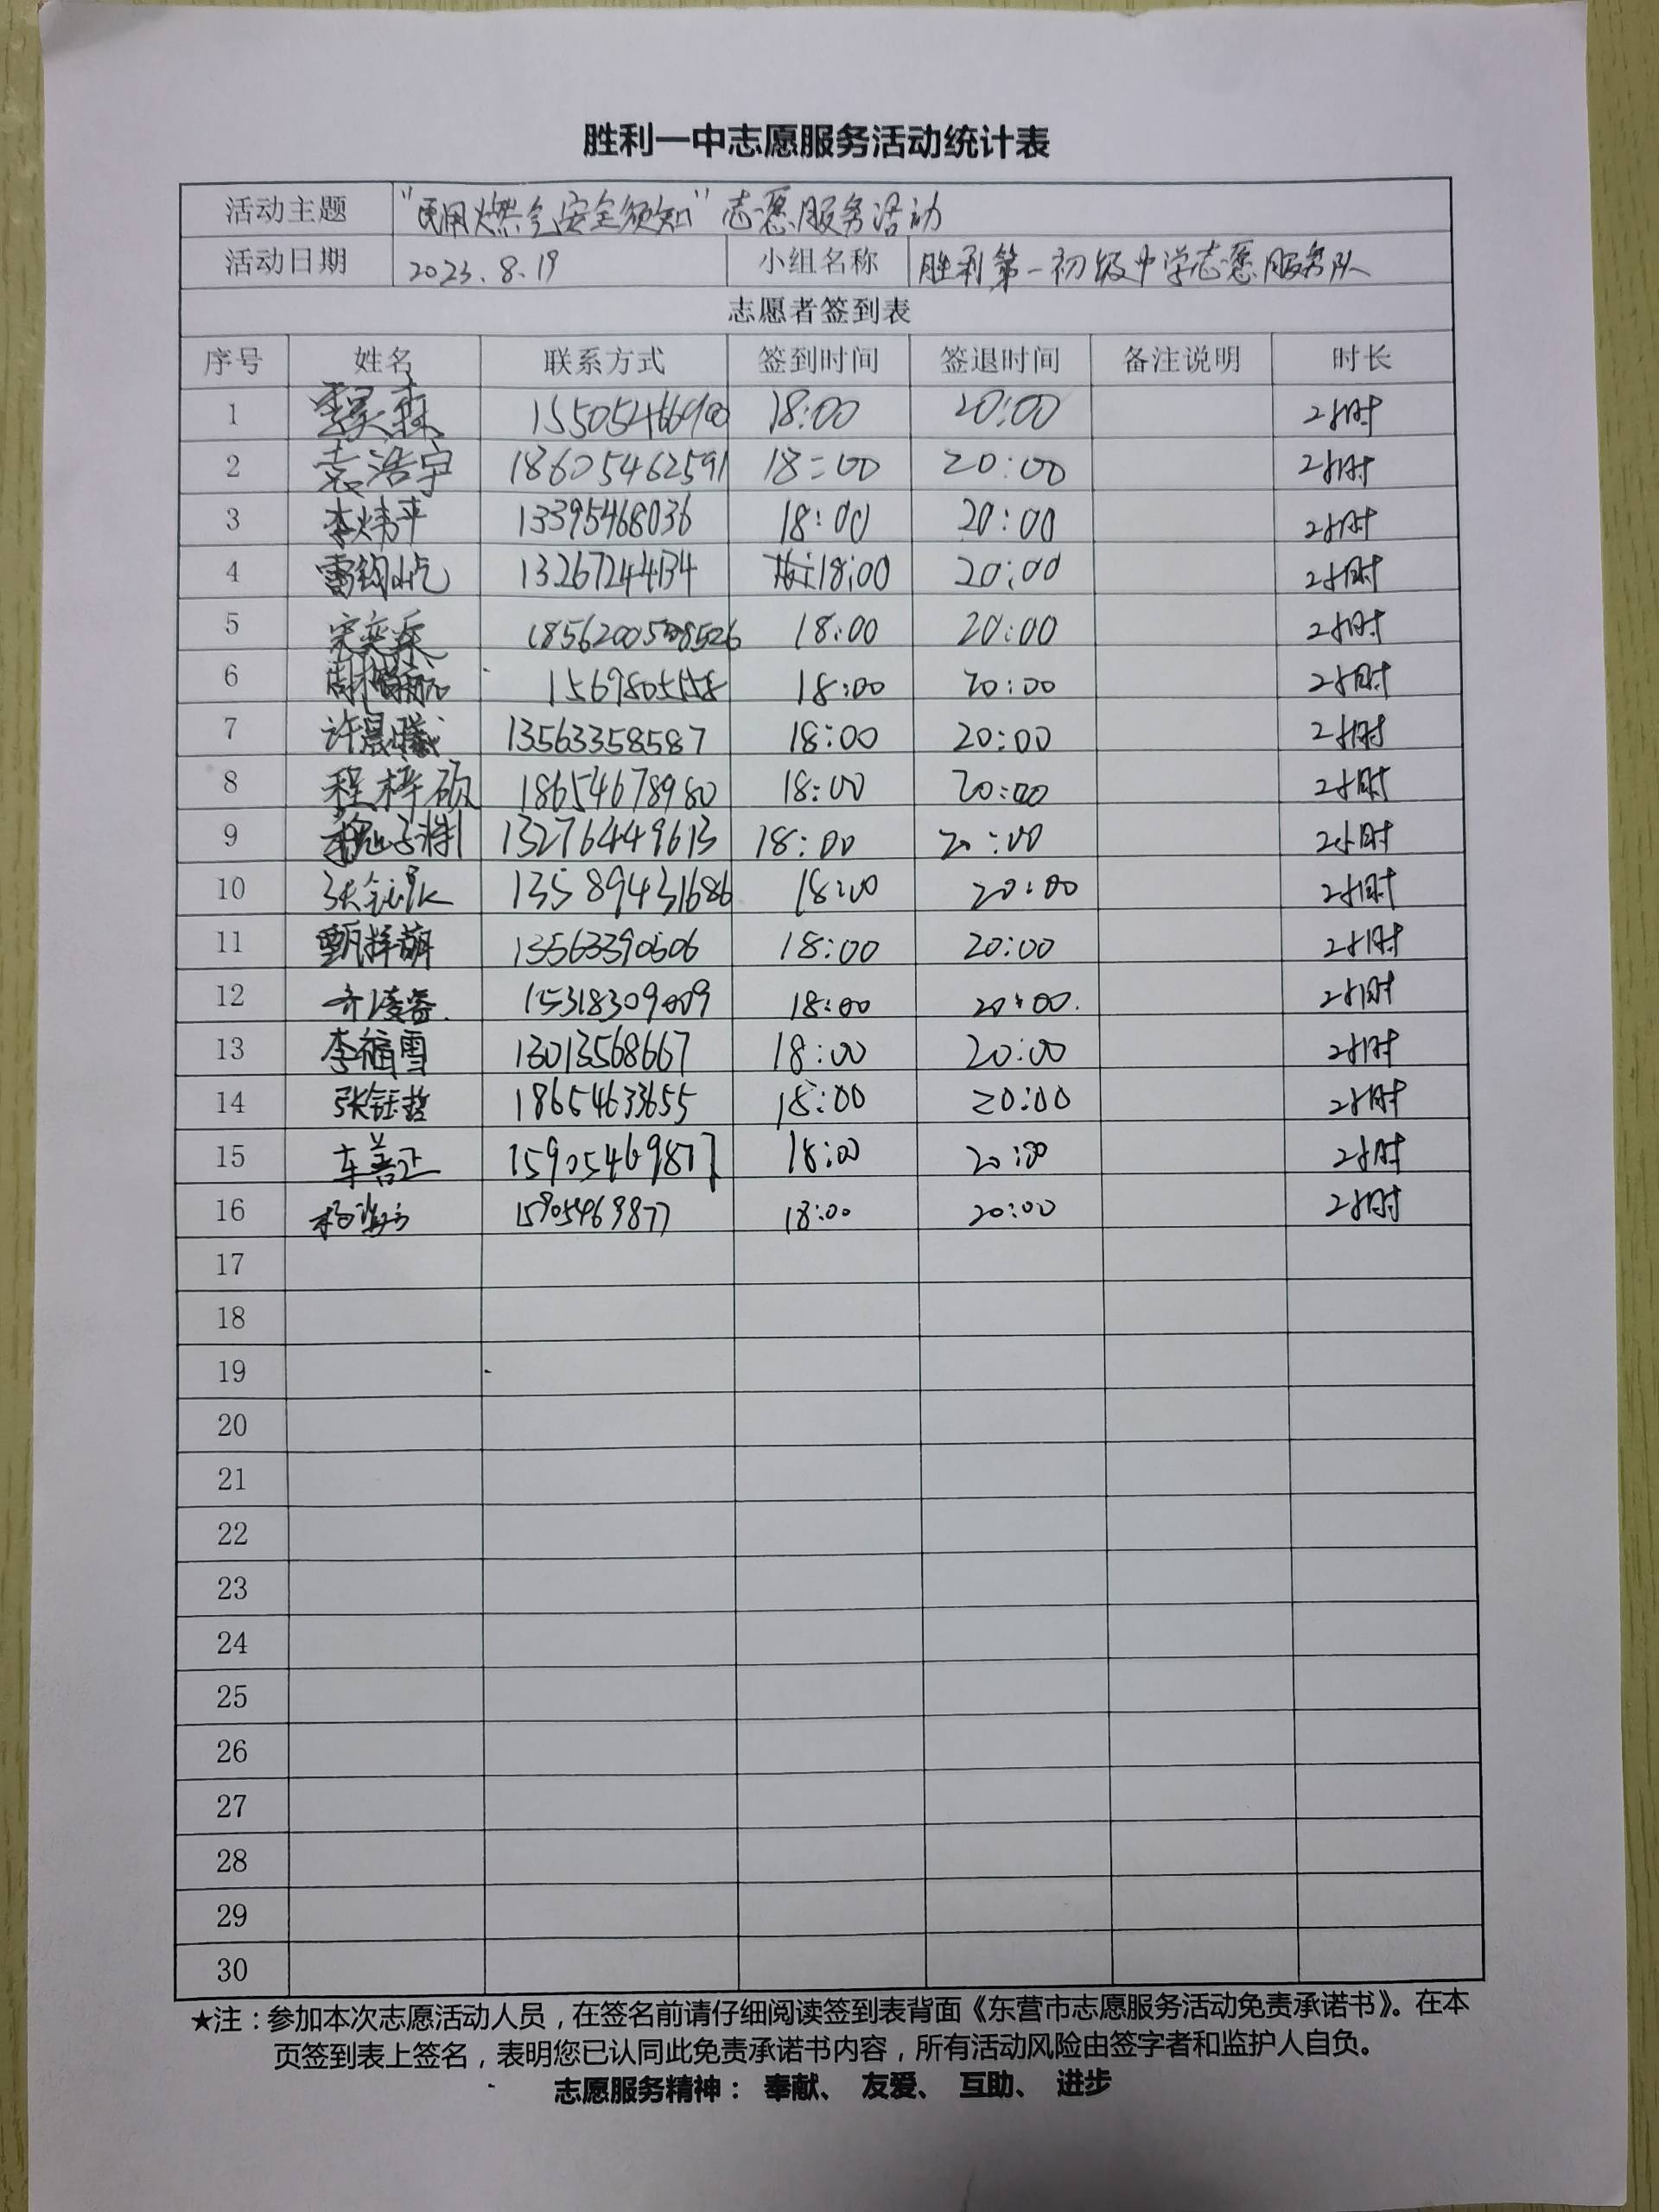 胜利一中志愿服务活动统计表
活动主题 "民用燃气安全须知"志愿服务活动
活动日期 2023.8.19 小组名称 胜利第一初级中学志愿服务队
志愿者签到表
序号 姓名 联系方式 签到时间 签退时间 备注说明 时长
1 15505466900 18:00 20:00 2小时
2 袁浩宇 18605462591 18:00 20:00 2小时
3 李炜平 13395468036 18:00 20:00 2小时
4 雷钧屹 13267244134 18:00 20:00 2小时
5 宋奕霖 18:00 20:00 2小时
6 18:00 20:00 2小时
7 许晨曦 13563358587 18:00 20:00 2小时
8 程梓硕 18654678980 18:00 20:00 2小时
9 13276449613 18:00 20:00 2小时
10 13589431686 18:00 20:00 2小时
11 13563390506 18:00 20:00 2小时
12 齐凌睿 15318309009 18:00 20:00 2小时
13 李福雪 13013568667 18:00 20:00 2小时
14 张钰哲 18654633655 18:00 20:00 2小时
15 车善正 15905469877 18:00 20:00 2小时
16 15905469877 18:00 20:00 2小时
17
18
19
20
21
22
23
24
25
26
27
28
29
30
★注：参加本次志愿活动人员，在签名前请仔细阅读签到表背面《东营市志愿服务活动免责承诺书》。在本
页签到表上签名，表明您已认同此免责承诺书内容，所有活动风险由签字者和监护人自负。
志愿服务精神： 奉献、 友爱、 互助、 进步